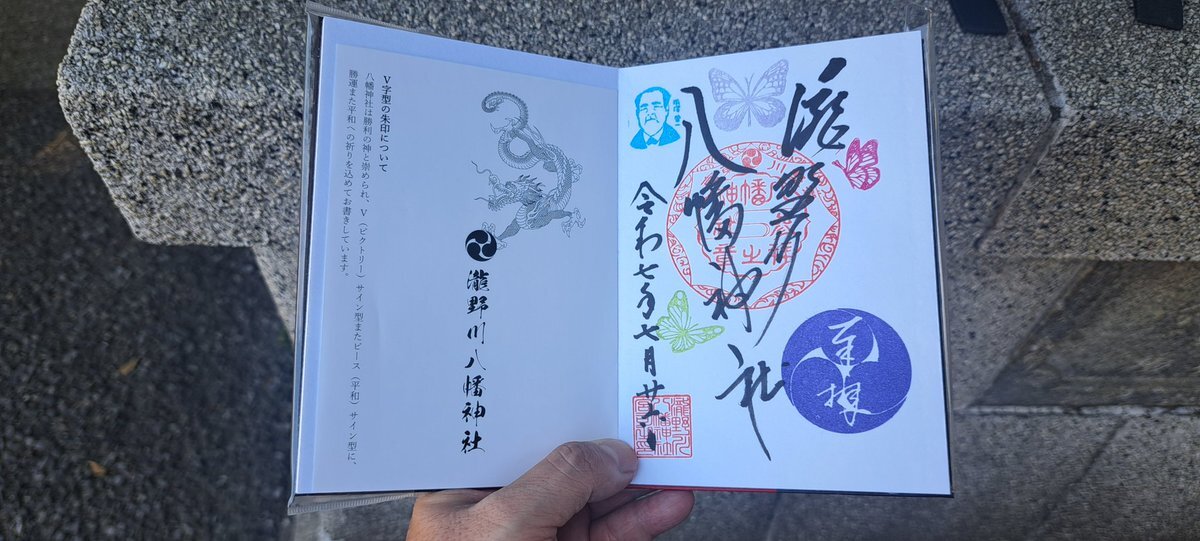 V字型の朱印について
八幡神社は勝利の神と崇められ、V（ビクトリー）サイン型またピース（平和）サイン型に、
勝運また平和への祈りを込めてお書きしています。
瀧野川八幡神社
瀧野川
八幡神社
令和七年七月廿六日
奉拝